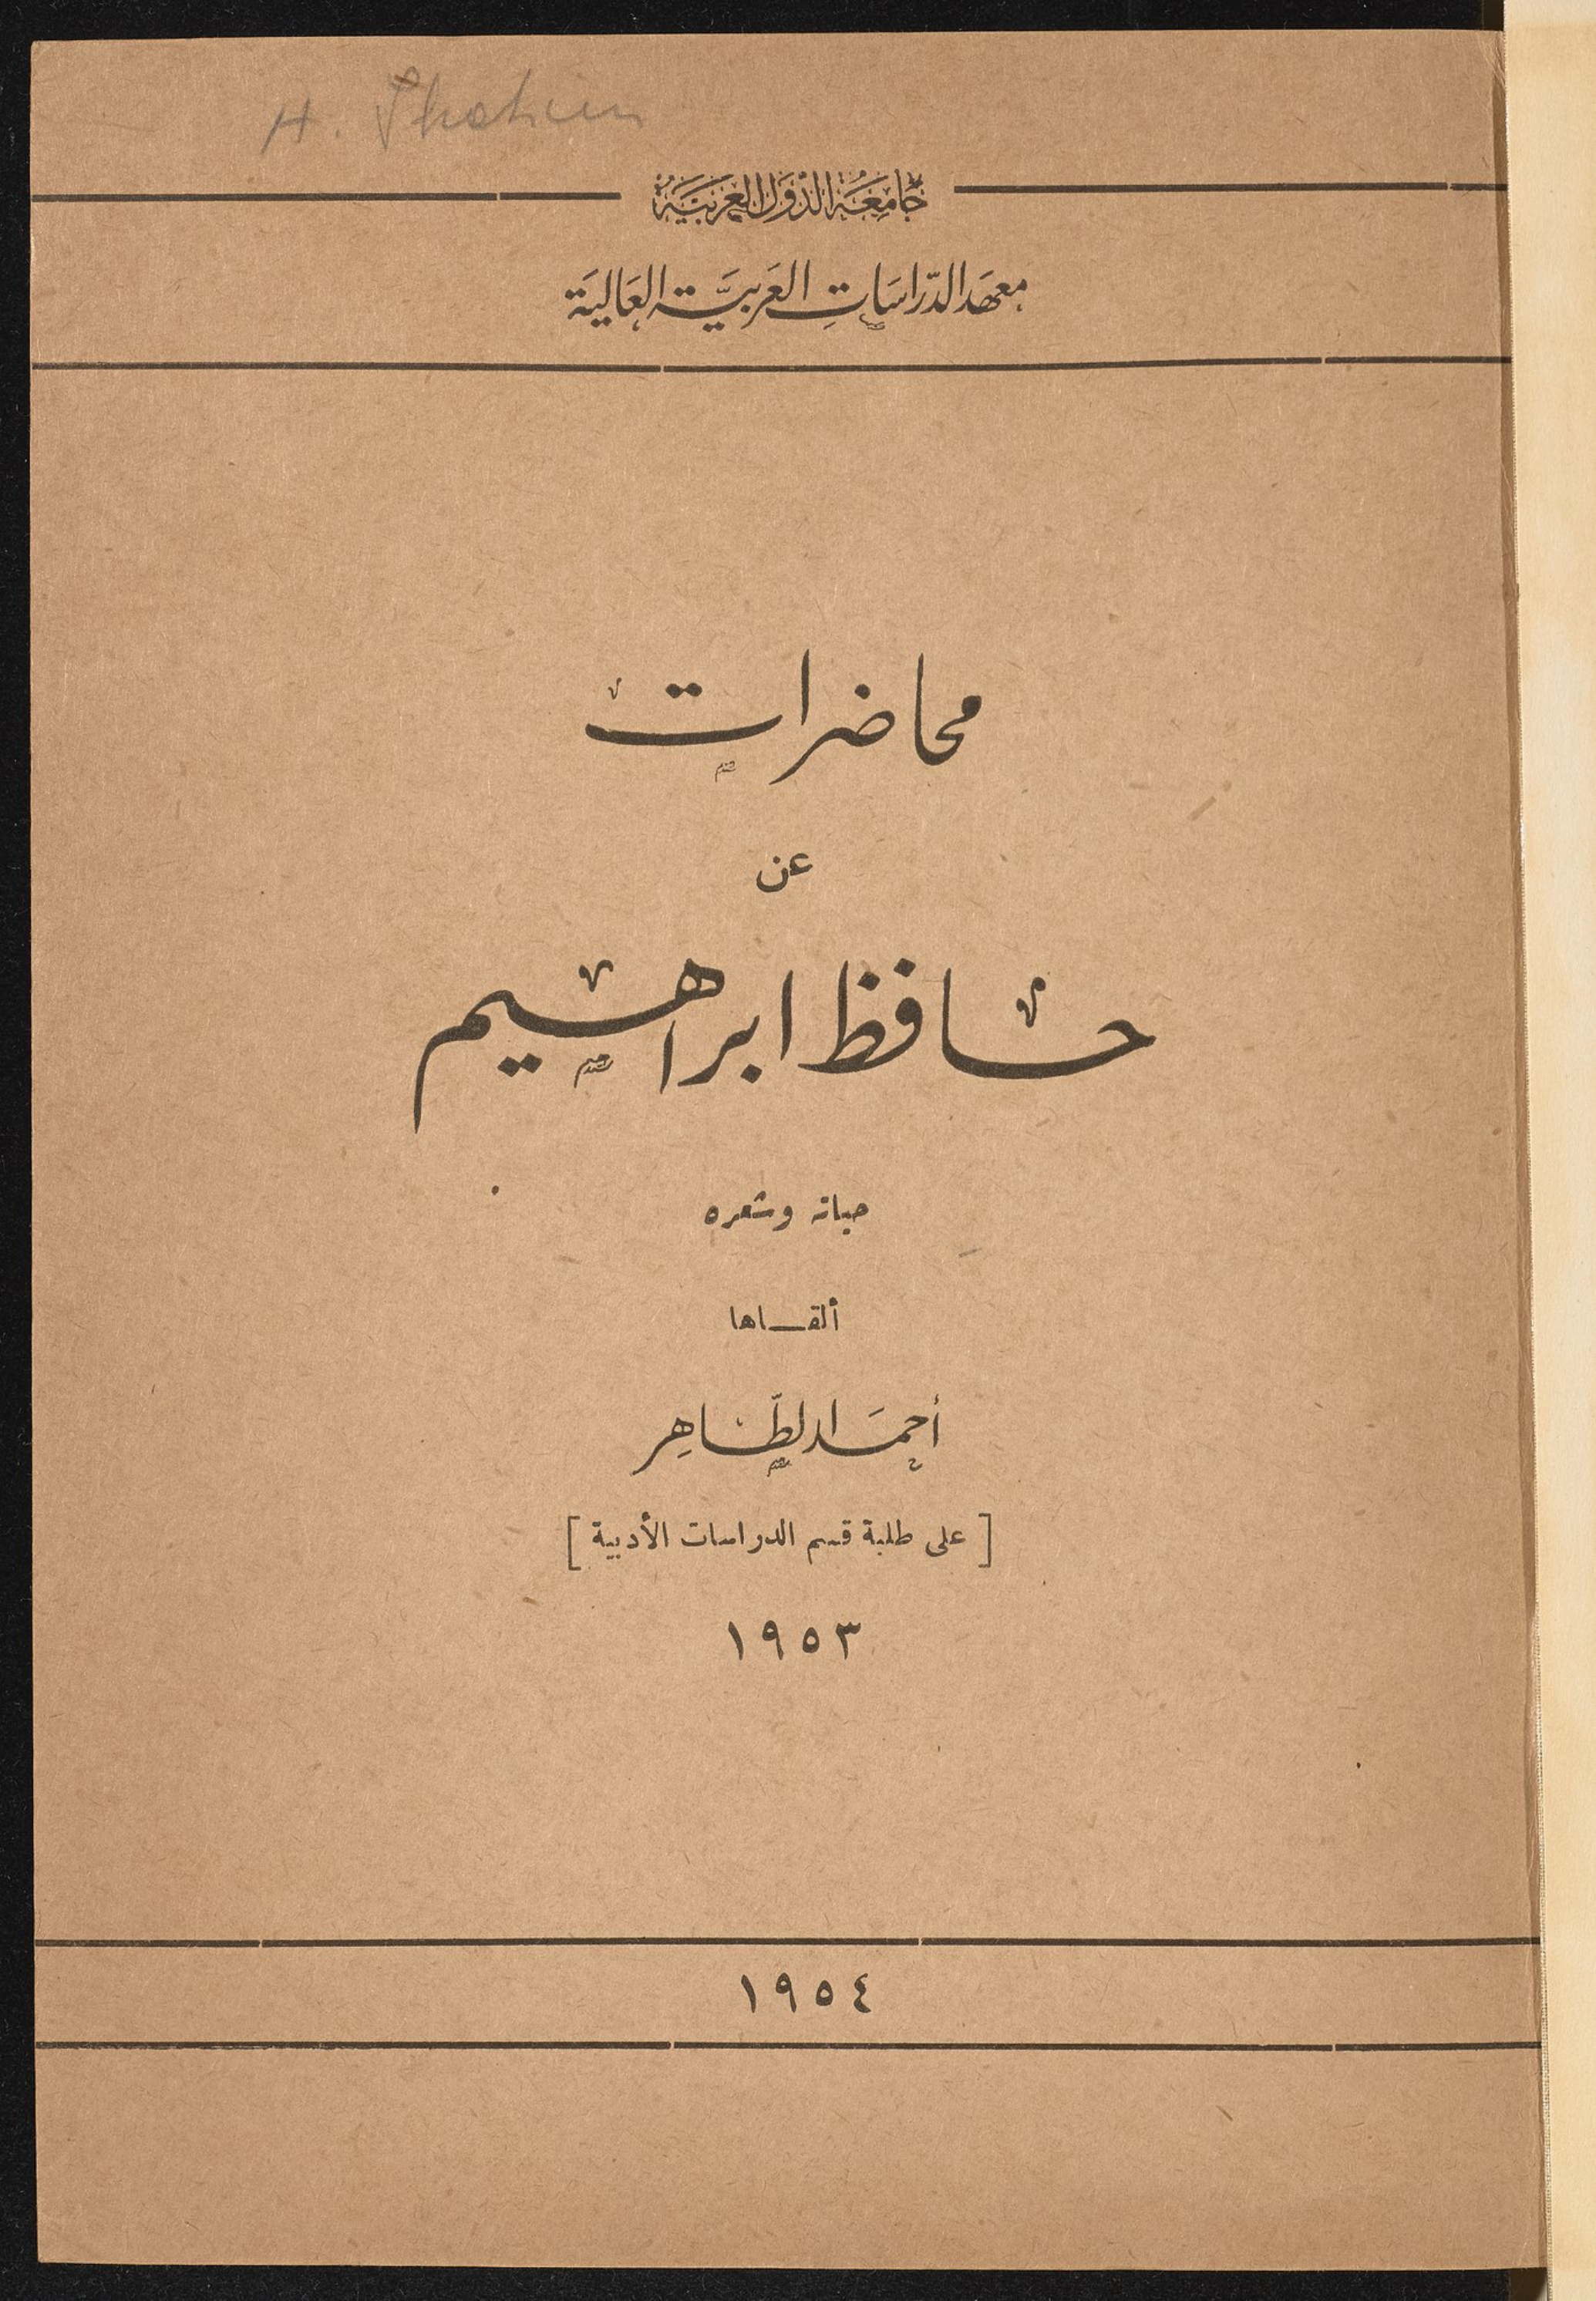 جَامِعَةُ الدُّوَلِ العَرَبِيَّةِ
معهَد الدّراسَاتِ العَربيَّة العَالية
محاضرات
عن
حافظ ابراهيم
حياته وشعره
ألقـاها
أحمَد الطّاهِر
[ على طلبة قسم الدراسات الأدبية ]
١٩٥٣
١٩٥٤